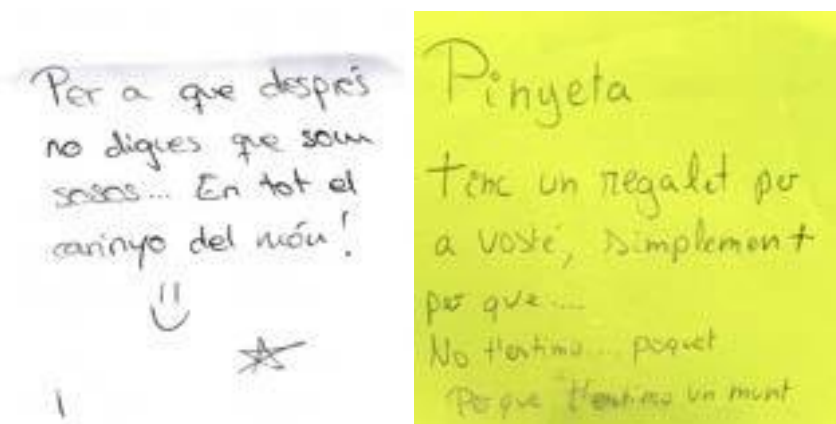 Per a que després
no digues que som
sosos... En tot el
carinyo del món!
Pinyeta
tinc un regalet per
a vosté, simplement
per que....
No t'estimo... poquet
Per que t'estimo un munt